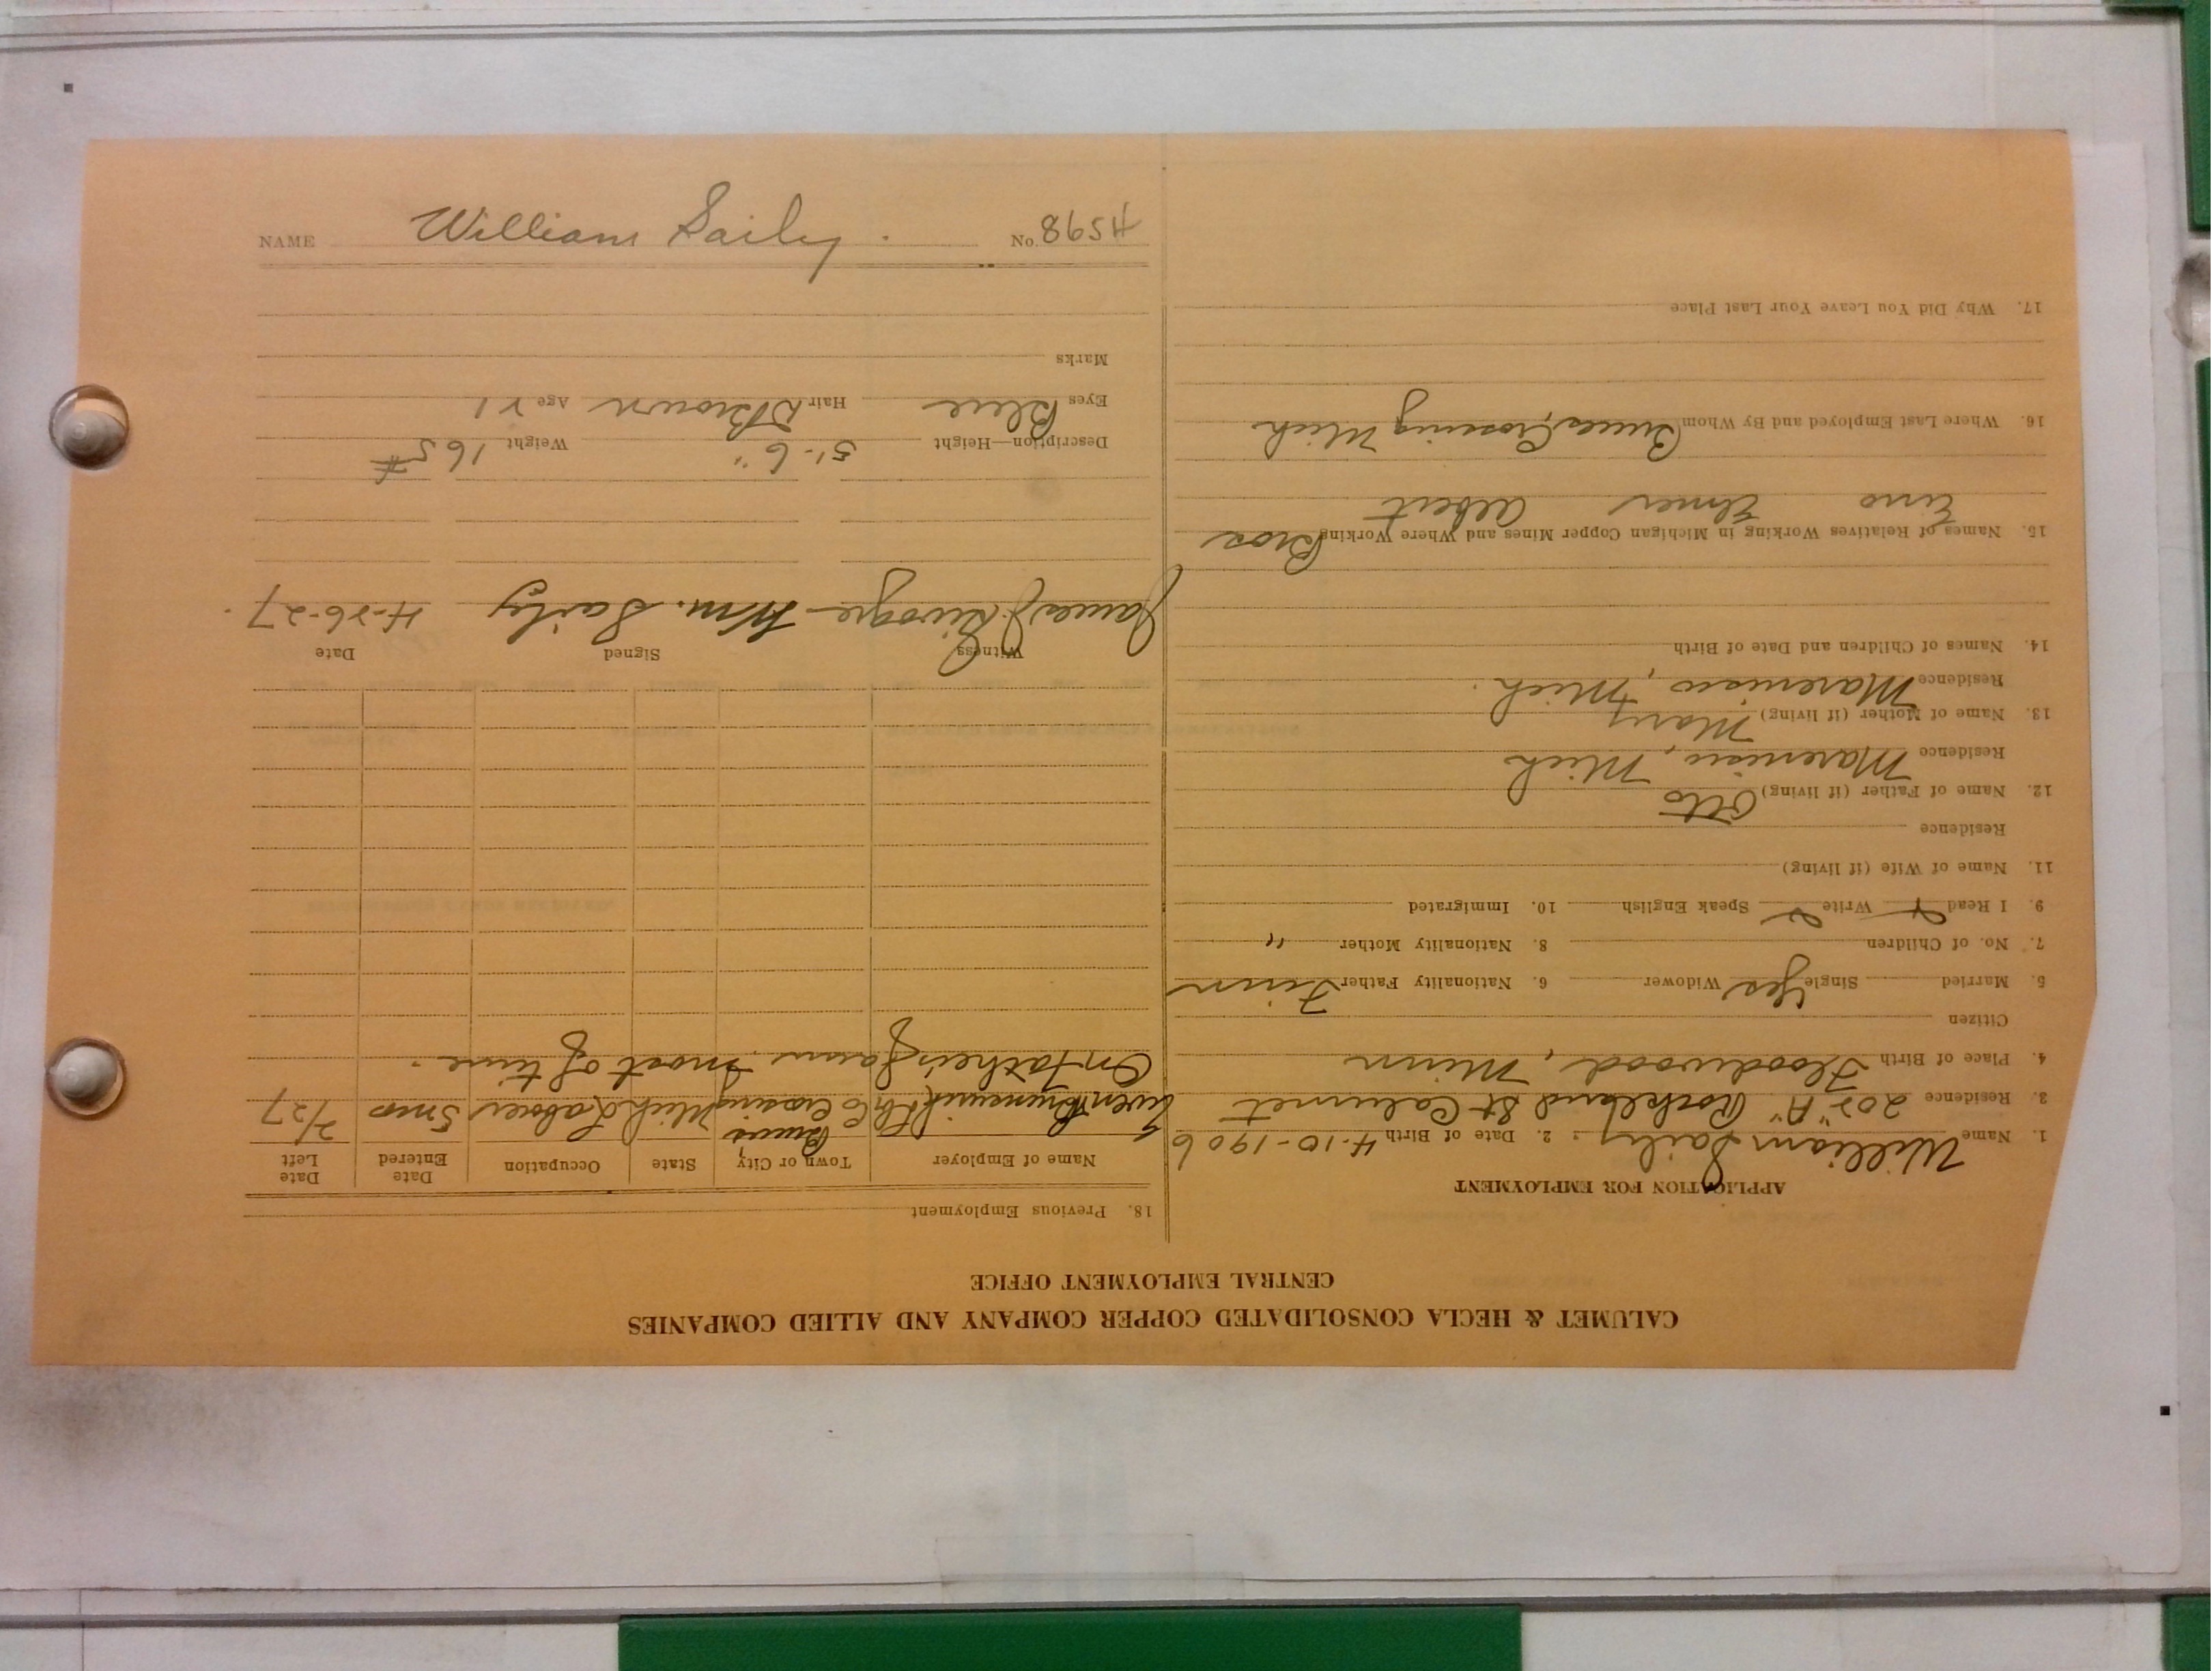 CALUMET & HECLA CONSOLIDATED COPPER COMPANY AND ALLIED COMPANIES
CENTRAL EMPLOYMENT OFFICE
APPLICATION FOR EMPLOYMENT
1. Name William Saily 2. Date of Birth 4-10-1906
3. Residence 205 "A" Rockland St Calumet
4. Place of Birth Floodwood, Minn
Citizen
5. Married Single Yes Widower 6. Nationality Father Finn
7. No. of Children 8. Nationality Mother "
9. I Read Write Speak English 10. Immigrated
11. Name of Wife (if living)
Residence
12. Name of Father (if living) Otto
Residence Marenisco, Mich
13. Name of Mother (if living) Mary
Residence Marenisco, Mich.
14. Names of Children and Date of Birth
15. Names of Relatives Working in Michigan Copper Mines and Where Working Bros
Eino Elmer Albert
16. Where Last Employed and By Whom Bruces Crossing Mich
17. Why Did You Leave Your Last Place
18. Previous Employment
Name of Employer Town or City State Occupation Date Entered Date Left
Bruces
Crossing Mich Laborer 5 mos 2/27
On father's farm most of time.
Witness Signed Date
James J Wm. Saily 4-26-27
Description—Height 5'-6" Weight 165#
Eyes Blue Hair D Brown Age 21
Marks
NAME William Saily. No. H598